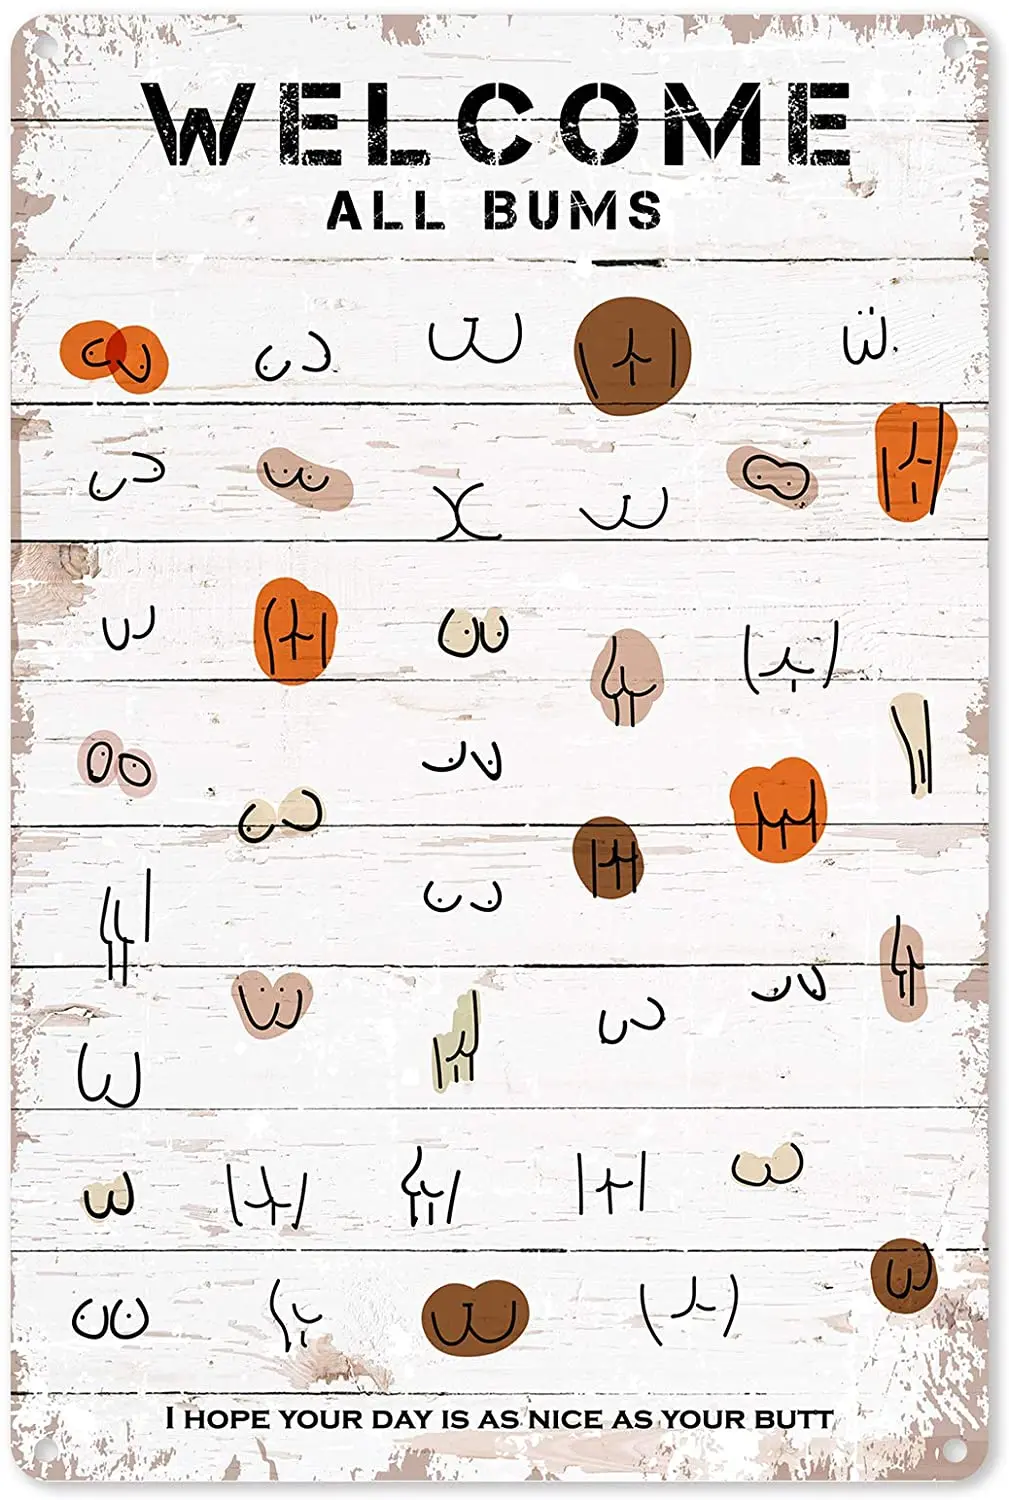 WELCOME
ALL BUMS
I HOPE YOUR DAY IS AS NICE AS YOUR BUTT